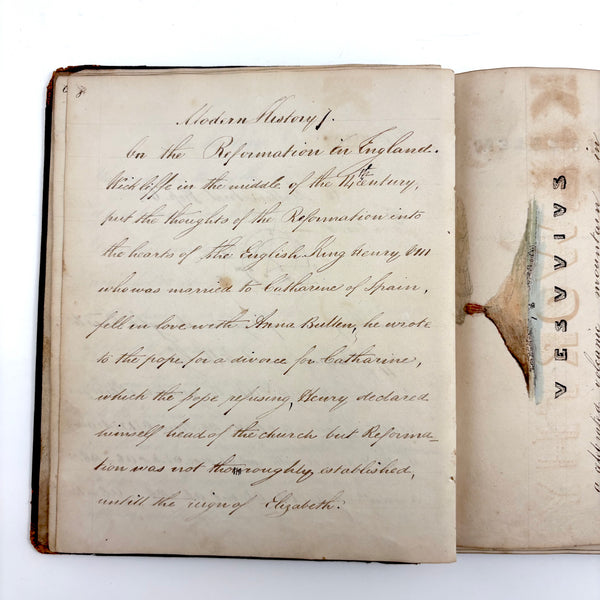 8
Modern History.
On the Reformation in England.
Wickliffe in the middle of the 14th century,
put the thoughts of the Reformation into
the hearts of the English King Henry VIII
who was married to Catharine of Spain,
fell in love with Anna Bullen, he wrote
to the pope for a divorce for Catharine,
which the pope refusing, Henry declared
himself head of the church but Reforma_
tion was not thoroughly established,
untill the reign of Elizabeth.
VESUVIUS
a celebrated volcanic mountain in